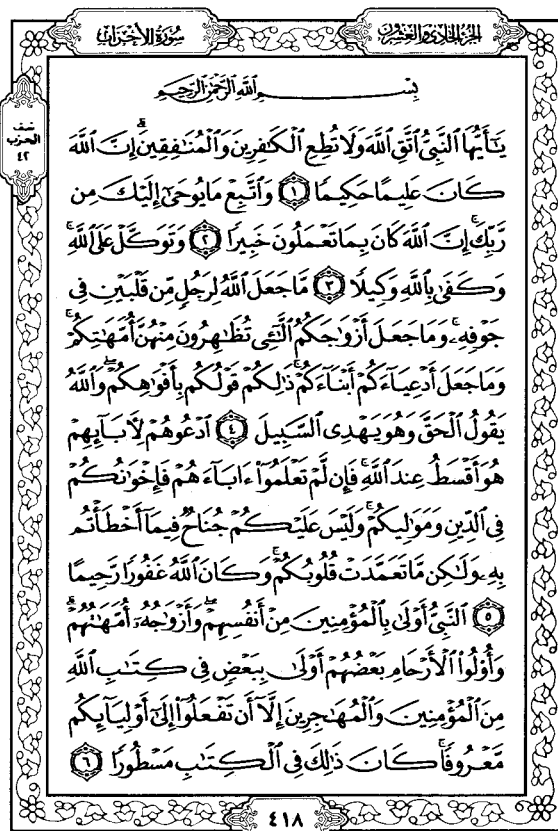 الجزء الحادي والعشرون
سورة الأحزاب
نصف
الحزب
٤٢
بِسْمِ ٱللَّهِ ٱلرَّحْمَٰنِ ٱلرَّحِيمِ
يَٰٓأَيُّهَا ٱلنَّبِىُّ ٱتَّقِ ٱللَّهَ وَلَا تُطِعِ ٱلْكَٰفِرِينَ وَٱلْمُنَٰفِقِينَ ۗ إِنَّ ٱللَّهَ
كَانَ عَلِيمًا حَكِيمًا ١ وَٱتَّبِعْ مَا يُوحَىٰٓ إِلَيْكَ مِن
رَّبِّكَ ۚ إِنَّ ٱللَّهَ كَانَ بِمَا تَعْمَلُونَ خَبِيرًا ٢ وَتَوَكَّلْ عَلَى ٱللَّهِ ۚ
وَكَفَىٰ بِٱللَّهِ وَكِيلًا ٣ مَّا جَعَلَ ٱللَّهُ لِرَجُلٍ مِّن قَلْبَيْنِ فِى
جَوْفِهِۦ ۚ وَمَا جَعَلَ أَزْوَٰجَكُمُ ٱلَّٰٓـِٔى تُظَٰهِرُونَ مِنْهُنَّ أُمَّهَٰتِكُمْ ۚ
وَمَا جَعَلَ أَدْعِيَآءَكُمْ أَبْنَآءَكُمْ ۚ ذَٰلِكُمْ قَوْلُكُم بِأَفْوَٰهِكُمْ ۖ وَٱللَّهُ
يَقُولُ ٱلْحَقَّ وَهُوَ يَهْدِى ٱلسَّبِيلَ ٤ ٱدْعُوهُمْ لِأَبَآئِهِمْ
هُوَ أَقْسَطُ عِندَ ٱللَّهِ ۚ فَإِن لَّمْ تَعْلَمُوٓا۟ ءَابَآءَهُمْ فَإِخْوَٰنُكُمْ
فِى ٱلدِّينِ وَمَوَٰلِيكُمْ ۚ وَلَيْسَ عَلَيْكُمْ جُنَاحٌ فِيمَآ أَخْطَأْتُم
بِهِۦ وَلَٰكِن مَّا تَعَمَّدَتْ قُلُوبُكُمْ ۚ وَكَانَ ٱللَّهُ غَفُورًا رَّحِيمًا
٥ ٱلنَّبِىُّ أَوْلَىٰ بِٱلْمُؤْمِنِينَ مِنْ أَنفُسِهِمْ ۖ وَأَزْوَٰجُهُۥٓ أُمَّهَٰتُهُمْ ۗ
وَأُو۟لُوا۟ ٱلْأَرْحَامِ بَعْضُهُمْ أَوْلَىٰ بِبَعْضٍ فِى كِتَٰبِ ٱللَّهِ
مِنَ ٱلْمُؤْمِنِينَ وَٱلْمُهَٰجِرِينَ إِلَّآ أَن تَفْعَلُوٓا۟ إِلَىٰٓ أَوْلِيَآئِكُم
مَّعْرُوفًا ۚ كَانَ ذَٰلِكَ فِى ٱلْكِتَٰبِ مَسْطُورًا ٦
٤١٨